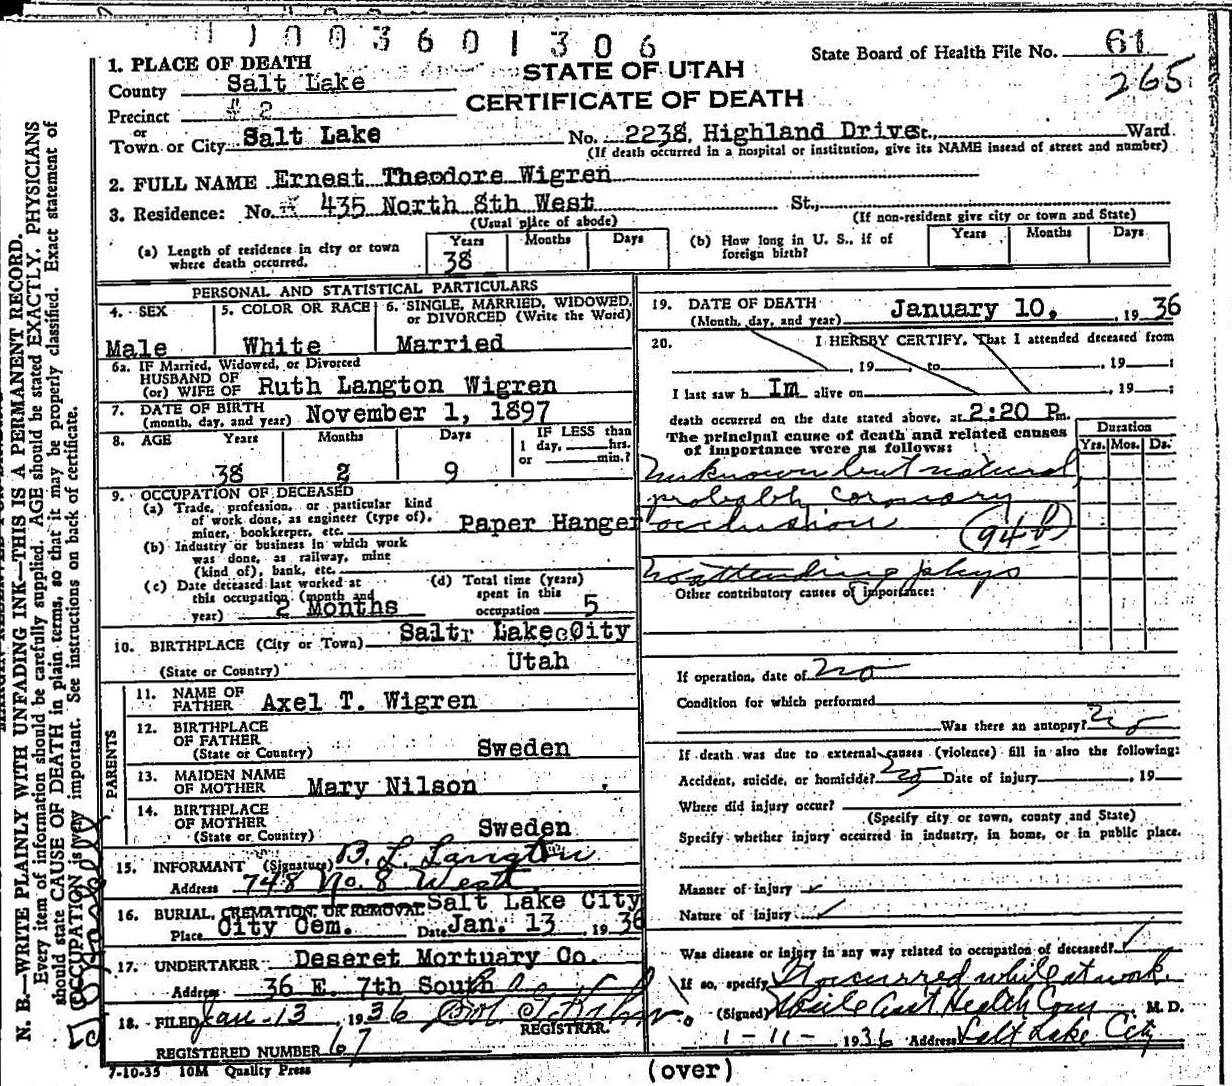 1 1 0 0 3 6 0 1 3 0 6
State Board of Health File No. 61
265
STATE OF UTAH
CERTIFICATE OF DEATH
1. PLACE OF DEATH
County Salt Lake
Precinct # 2
or
Town or City Salt Lake No. 2238, Highland Drive St., Ward
(If death occurred in a hospital or institution, give its NAME insead of street and number)
2. FULL NAME Ernest Theodore Wigren
3. Residence: No. 435 North 8th West St.,
(Usual place of abode) (If non-resident give city or town and State)
(a) Length of residence in city or town where death occurred. Years 38 Months Days
(b) How long in U. S., if of foreign birth? Years Months Days
PERSONAL AND STATISTICAL PARTICULARS
4. SEX Male
5. COLOR OR RACE White
6. SINGLE, MARRIED, WIDOWED, or DIVORCED (Write the Word) Married
6a. IF Married, Widowed, or Divorced
HUSBAND OF
(or) WIFE OF Ruth Langton Wigren
7. DATE OF BIRTH
(month, day, and year) November 1, 1897
8. AGE Years 38 Months 2 Days 9
IF LESS than
1 day, hrs.
or min.?
9. OCCUPATION OF DECEASED
(a) Trade, profession, or particular kind
of work done, as engineer (type of),
miner, bookkeeper, etc. Paper Hanger
(b) Industry or business in which work
was done, as railway, mine
(kind of), bank, etc.
(c) Date deceased last worked at
this occupation (month and
year) 2 Months
(d) Total time (years)
spent in this
occupation 5
10. BIRTHPLACE (City or Town) Saltr Lake City
(State or Country) Utah
PARENTS
11. NAME OF
FATHER Axel T. Wigren
12. BIRTHPLACE
OF FATHER
(State or Country) Sweden
13. MAIDEN NAME
OF MOTHER Mary Nilson
14. BIRTHPLACE
OF MOTHER
(State or Country) Sweden
15. INFORMANT (Signature) B. L. Langton
Address 748 No. 8 West
Salt Lake City
16. BURIAL, CREMATION, OR REMOVAL
Place City Cem. Date Jan. 13 1936
17. UNDERTAKER Deseret Mortuary Co.
Address 36 E. 7th South
18. FILED Jan-13 1936
REGISTRAR.
REGISTERED NUMBER 67
7-10-35 10M Quality Press
19. DATE OF DEATH
(Month, day, and year) January 10, , 1936
20. I HEREBY CERTIFY, That I attended deceased from
, 19 , to , 19 ;
I last saw h Im alive on , 19 ;
death occurred on the date stated above, at 2:20 P m.
The principal cause of death and related causes
of importance were as follows:
Duration
Yrs. Mos. Ds.
Unknown but natural,
probably coronary
occlusion (94b)
No attending phys
Other contributory causes of importance:
If operation, date of no
Condition for which performed
Was there an autopsy? no
If death was due to external causes (violence) fill in also the following:
Accident, suicide, or homicide? no Date of injury , 19
Where did injury occur?
(Specify city or town, county and State)
Specify whether injury occurred in industry, in home, or in public place.
Manner of injury ✓
Nature of injury ✓
Was disease or injury in any way related to occupation of deceased? ✓
If so, specify It occurred while at work.
(Signed) Health Com M. D.
1-11- 1936 Address Salt Lake City
(over)
N. B.—WRITE PLAINLY WITH UNFADING INK—THIS IS A PERMANENT RECORD.
Every item of information should be carefully supplied. AGE should be stated EXACTLY. PHYSICIANS
should state CAUSE OF DEATH in plain terms, so that it may be properly classified. Exact statement of
OCCUPATION is very important. See instructions on back of certificate.